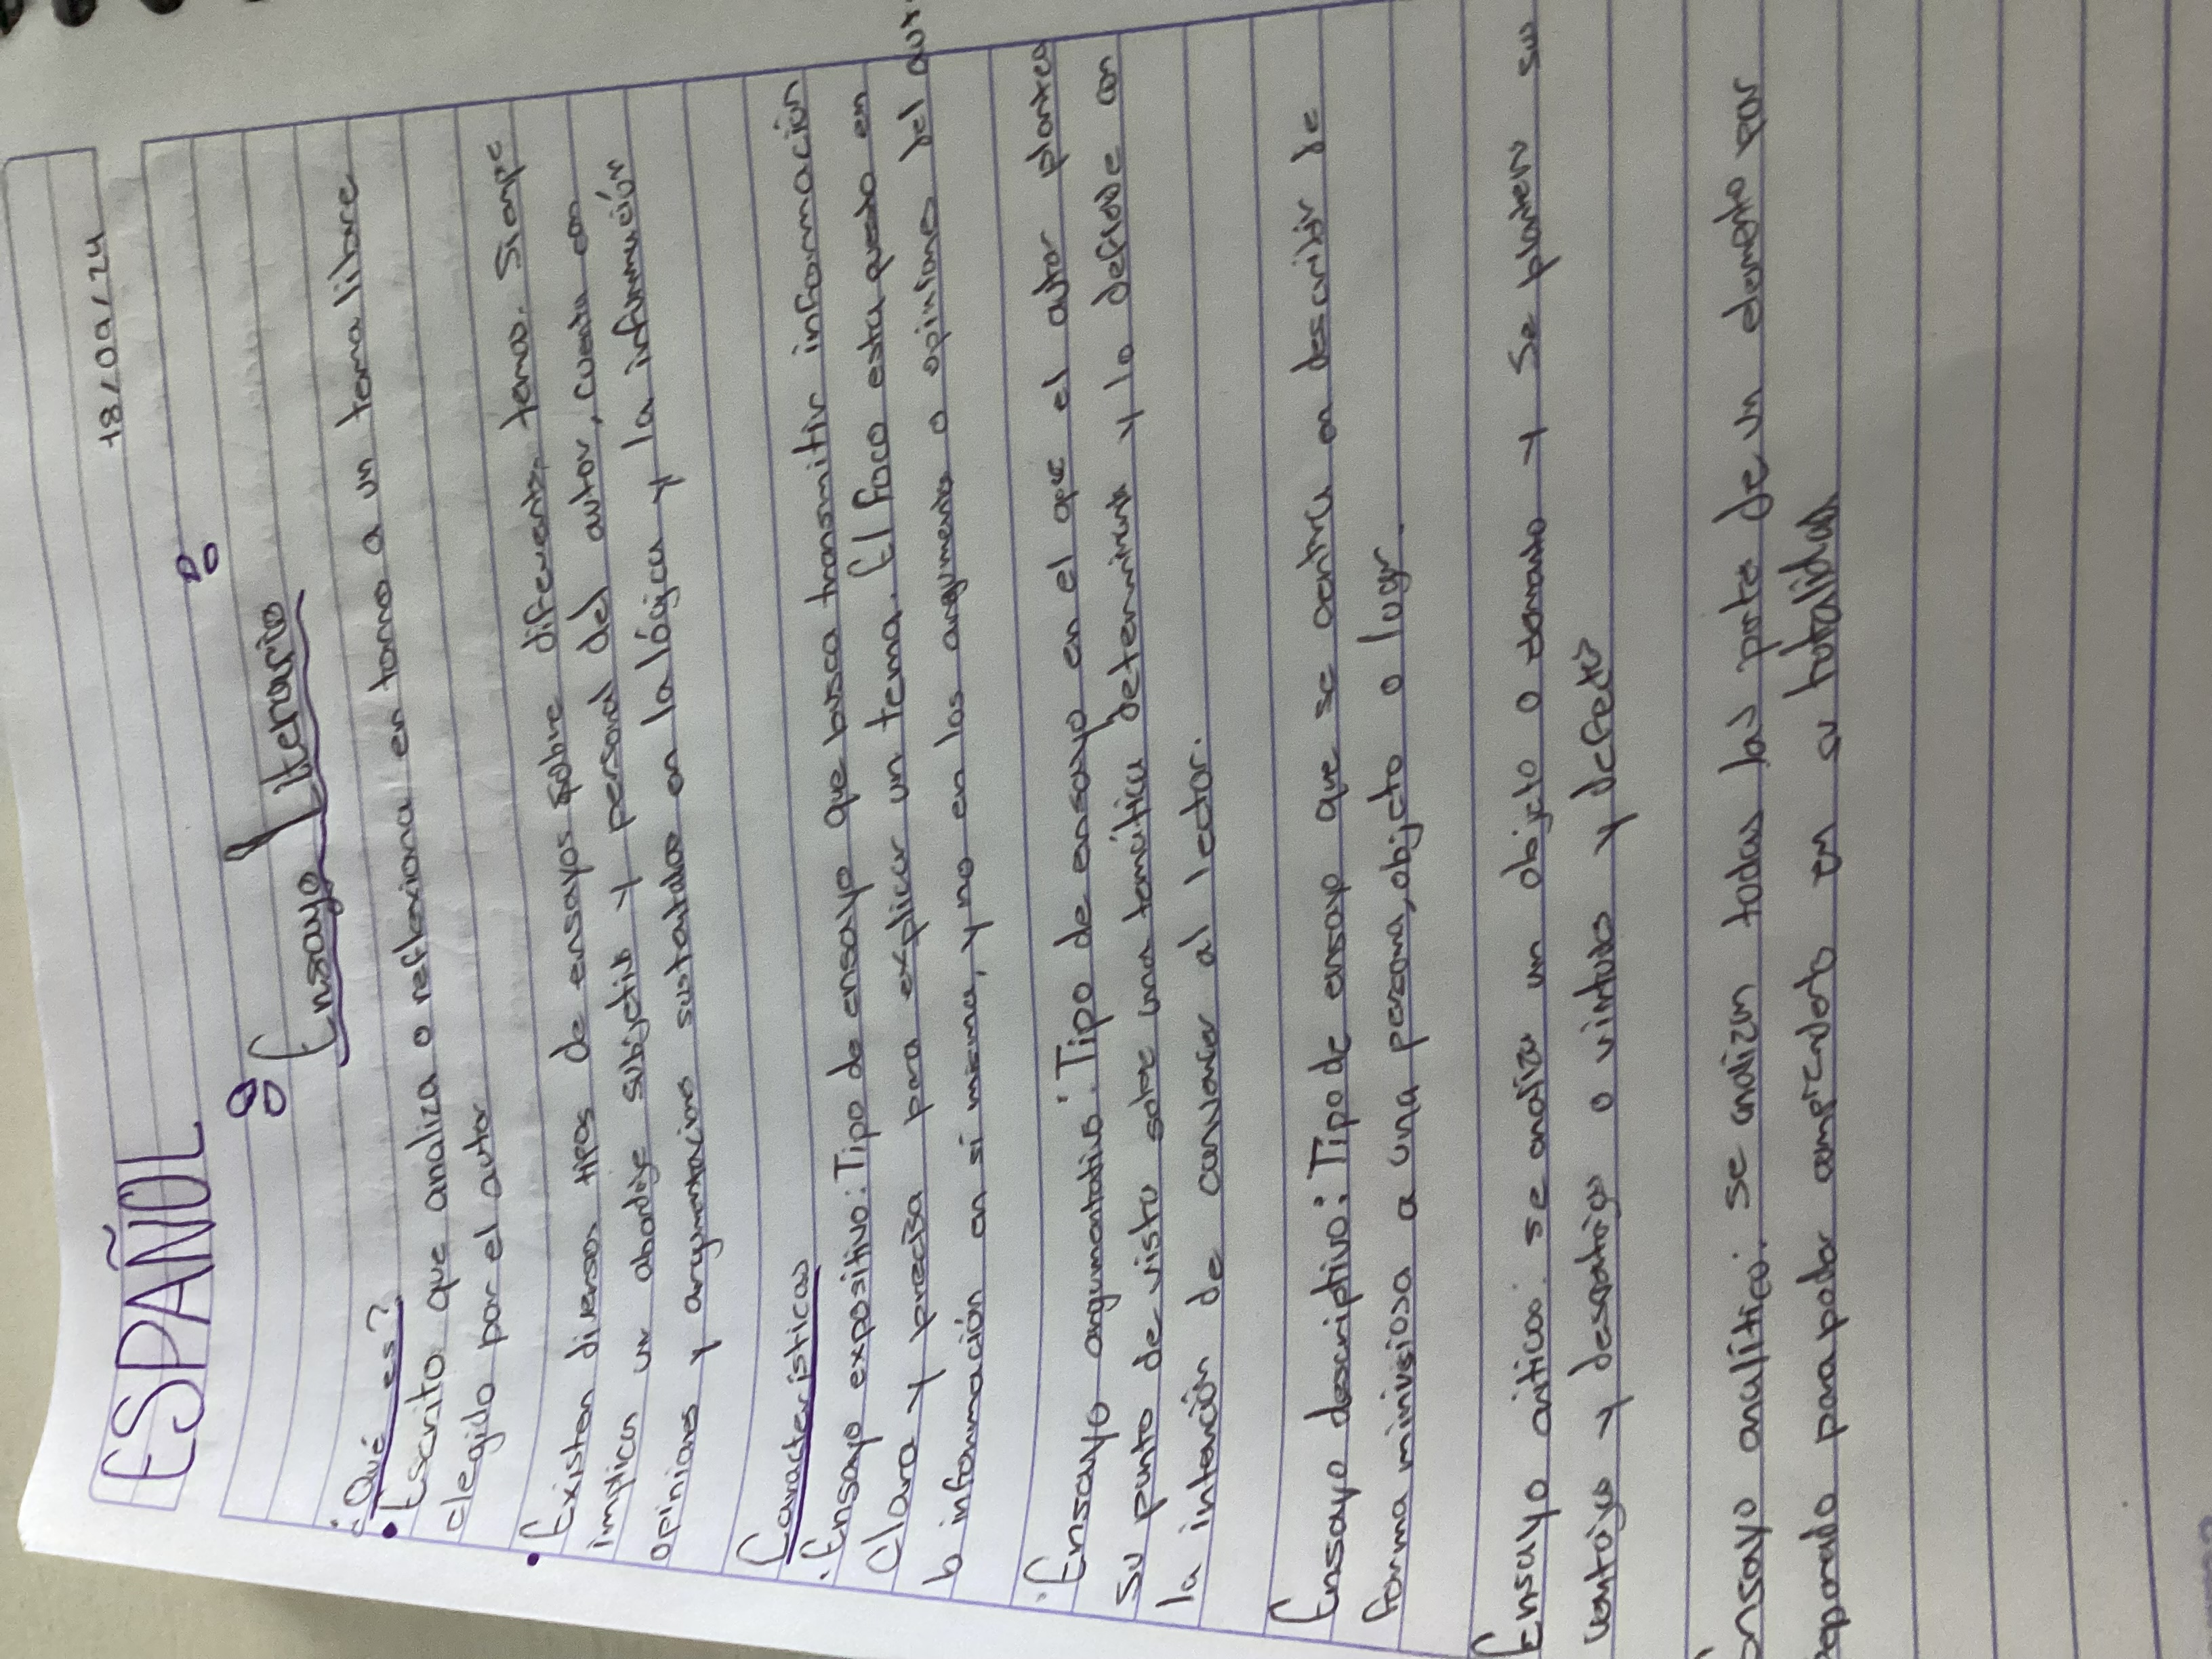 ESPAÑOL
18/09/24
Ensayo Literario
¿Qué es?
• Escrito que analiza o reflexiona en torno a un tema libre
elegido por el autor
• Existen diversos tipos de ensayos sobre diferentes temas. Siempre
implican un abordaje subjetivo y personal del autor, cuenta con
opiniones y argumentacines sustentados en la lógica y la información
Caracteristicas
· Ensayo expositivo: Tipo de ensayo que busca transmitir información
Clara y precisa para explicar un tema. El foco esta puesto en
la información en si misma, y no en los argumentos o opiniones del aut
· Ensayo argumentativo: Tipo de ensayo en el que el autor plantea
su punto de vista sobre una temática determinada y lo defiende con
la intención de convencer al lector.
Ensayo descriptivo: Tipo de ensayo que se centra en describir de
forma minusiosa a una persona, objecto o lugar.
Ensayo critico: se analiza un objeto o y se plantea su
ventajas y desventajas o virtudes y defectos
Ensayo analitico: se analizan todas las partes de un elemento por
separado para poder comprenderlo en su totalidad